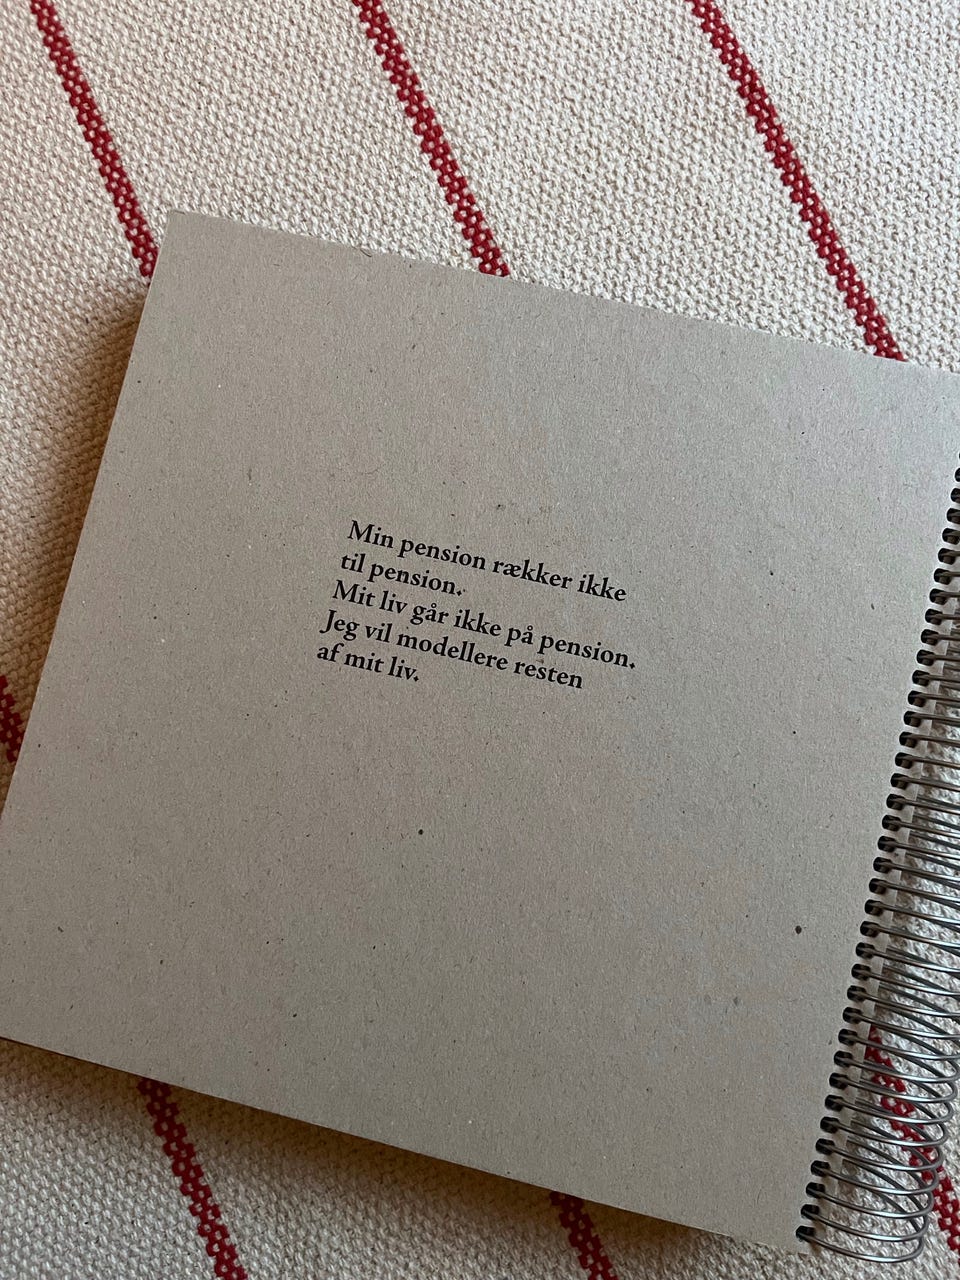 Min pension rækker ikke
til pension.
Mit liv går ikke på pension.
Jeg vil modellere resten
af mit liv.